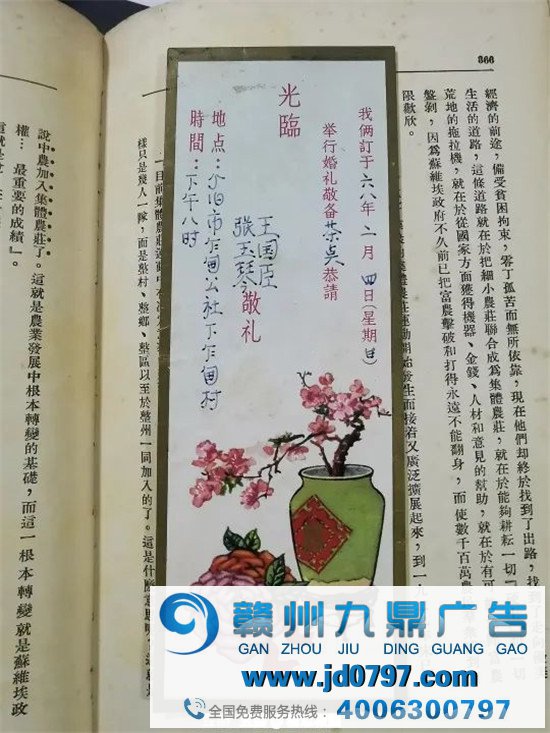 866
經濟的前途，備受貧困拘束，零丁孤苦而無所依靠，現在他們却終於找到了出路，找
生活的道路，這條道路就在於把細小農莊聯合成爲集體農莊，就在於能夠耕耘一切
荒地的拖拉機，就在於從國家方面獲得機器、金錢、人材和意見的幫助，就在於有可
盤剝，因爲蘇維埃政府不久前已把富農擊破和打得永遠不能翻身，而使數千百萬農
限歡欣。
我俩訂于六八年二月四日(星期日)
举行婚礼敬备茶点恭請
光臨
王国臣
張玉琴敬礼
地点：个旧市乍甸公社下乍甸村
時間：下午八时
一目前集體農莊運動中
樣只是幾人一隊，而是整村、整鄉、整區以至於整州一同加入的了。這是什麼
說中農加入集體農莊了。這就是農業發展中根本轉變的基礎，而這一根本轉變就是蘇維埃政
權…最重要的成績』。
贛州九鼎广告
GAN ZHOU JIU DING GUANG GAO
www.jd0797.com
全国免费服务热线：4006300797